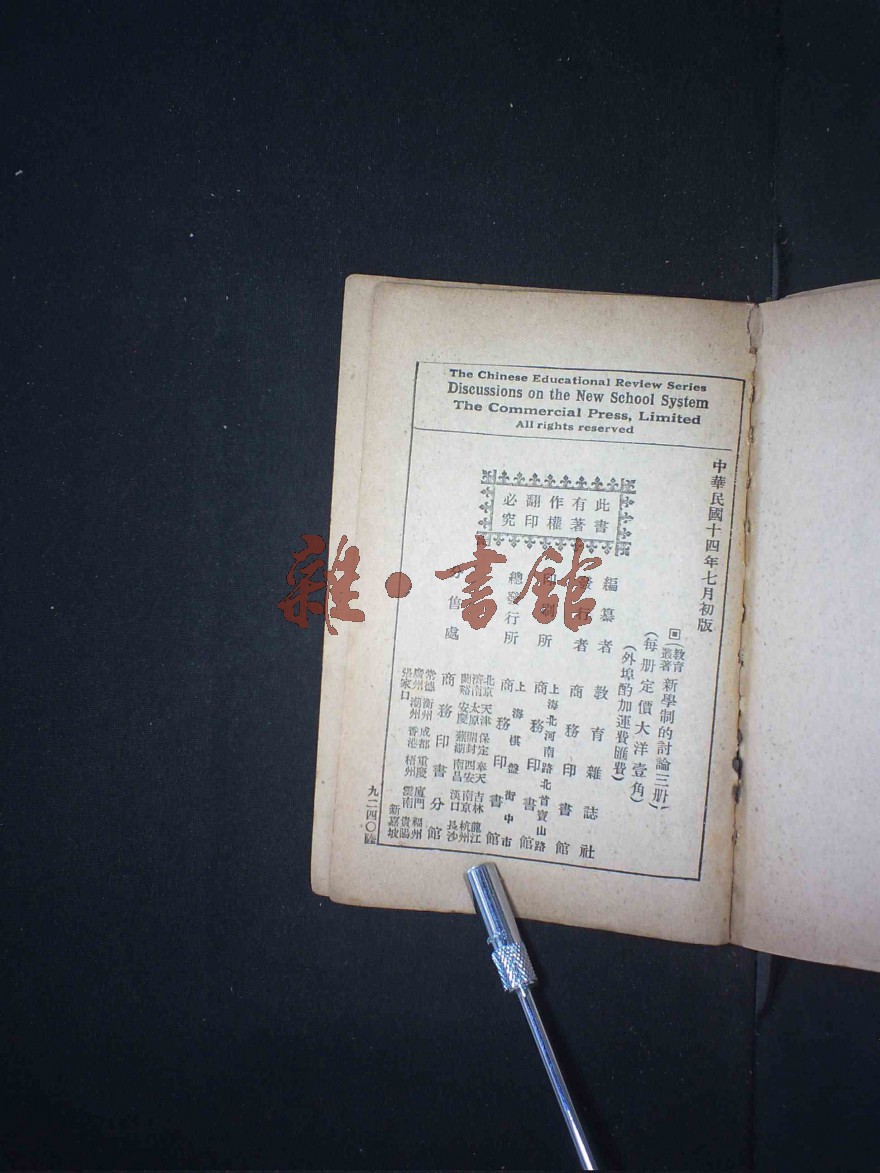 The Chinese Educational Review Series
Discussions on the New School System
The Commercial Press, Limited
All rights reserved
中華民國十四年七月初版
此書
有著
作權
翻印
必究
(教育叢著)新學制的討論三册
(每册定價大洋壹角)
(外埠酌加運費匯費)
編纂者 教育雜誌社
發行者 商務印書館
上海北河南路北首寶山路
印刷所 商務印書館
上海棋盤街中市
總發行所 商務印書館
分售處 商務印書分館
北京 天津 保定 奉天 吉林 龍江
濟南 太原 開封 西安 南京 杭州
蘭谿 安慶 蕪湖 南昌 漢口 長沙
常德 衡州 成都 重慶 廈門 福州
廣州 潮州 香港 梧州 雲南 貴陽
張家口 新嘉坡
九二四〇
雜·書館